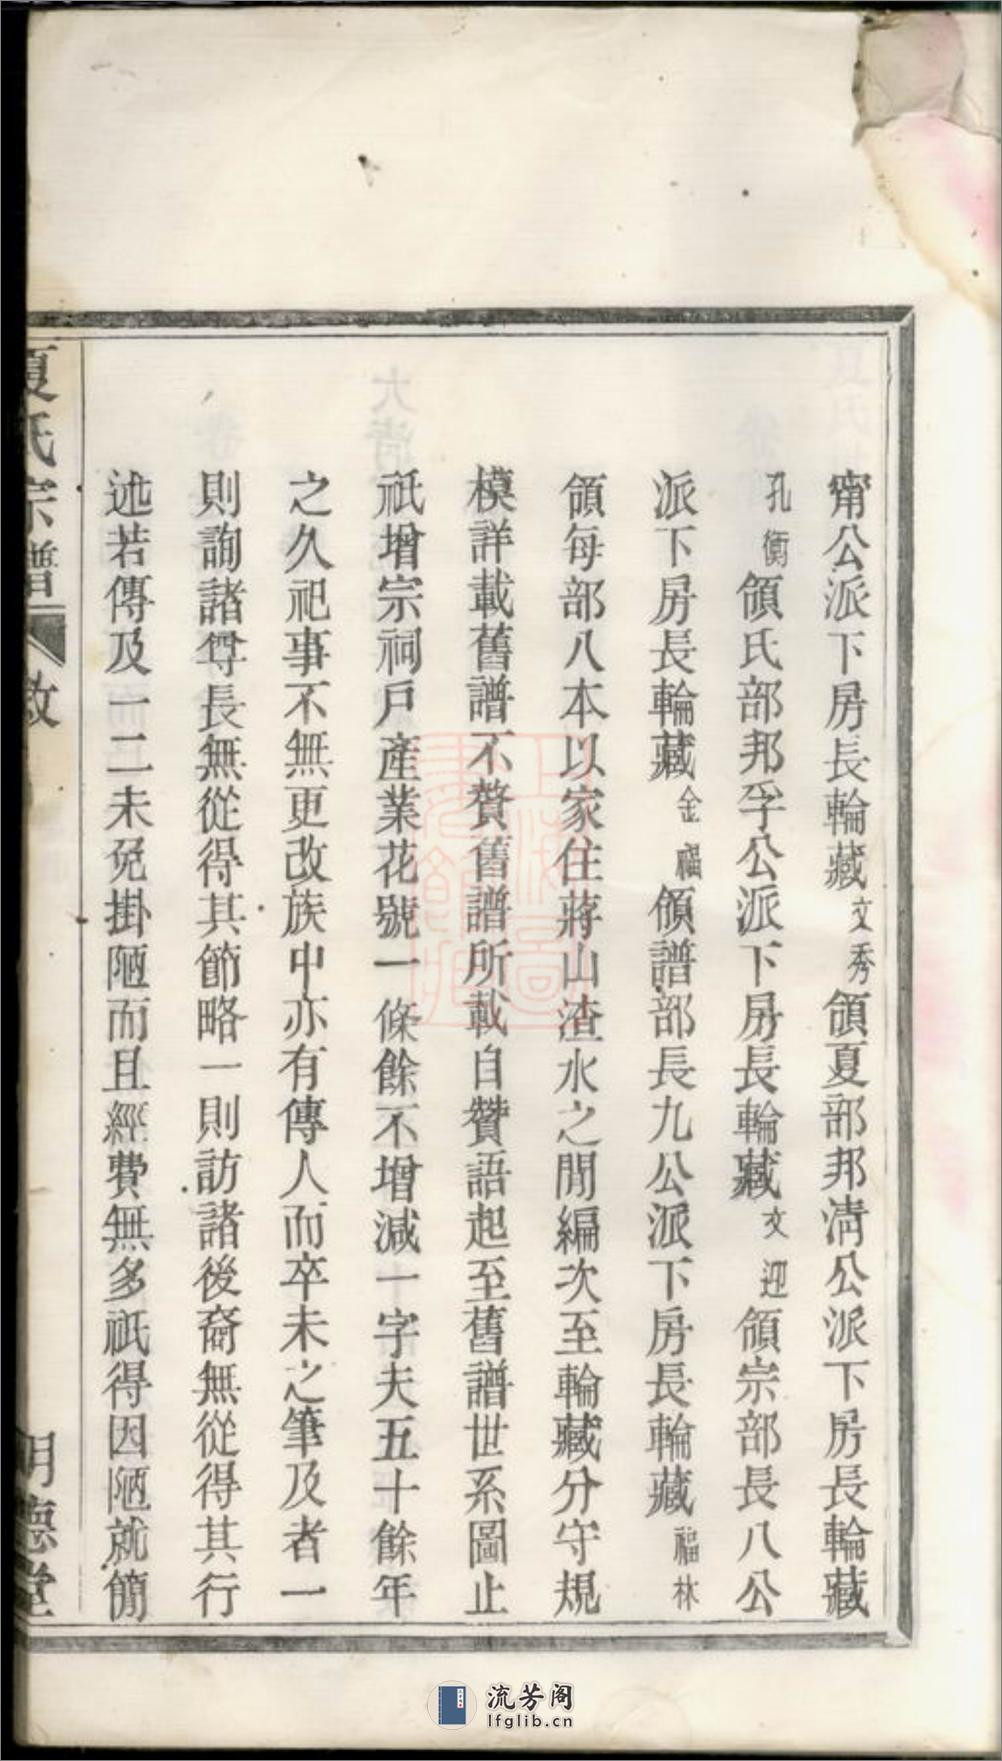 甯公派下房長輪藏文秀領夏部邦清公派下房長輪藏
孔衡領氏部邦孚公派下房長輪藏文迎領宗部長八公
派下房長輪藏金福領譜部長九公派下房長輪藏福林
領每部八本以家住蔣山渣水之間編次至輪藏分守規
模詳載舊譜不贅舊譜所載自贊語起至舊譜世系圖止
祇增宗祠戶產業花號一條餘不增減一字夫五十餘年
之久祀事不無更改族中亦有傳人而卒未之筆及者一
則詢諸尊長無從得其節略一則訪諸後裔無從得其行
述若傳及一二未免掛陋而且經費無多祇得因陋就簡
夏氏宗譜
敘
明德堂
上海圖書館藏
流芳阁
lfglib.cn